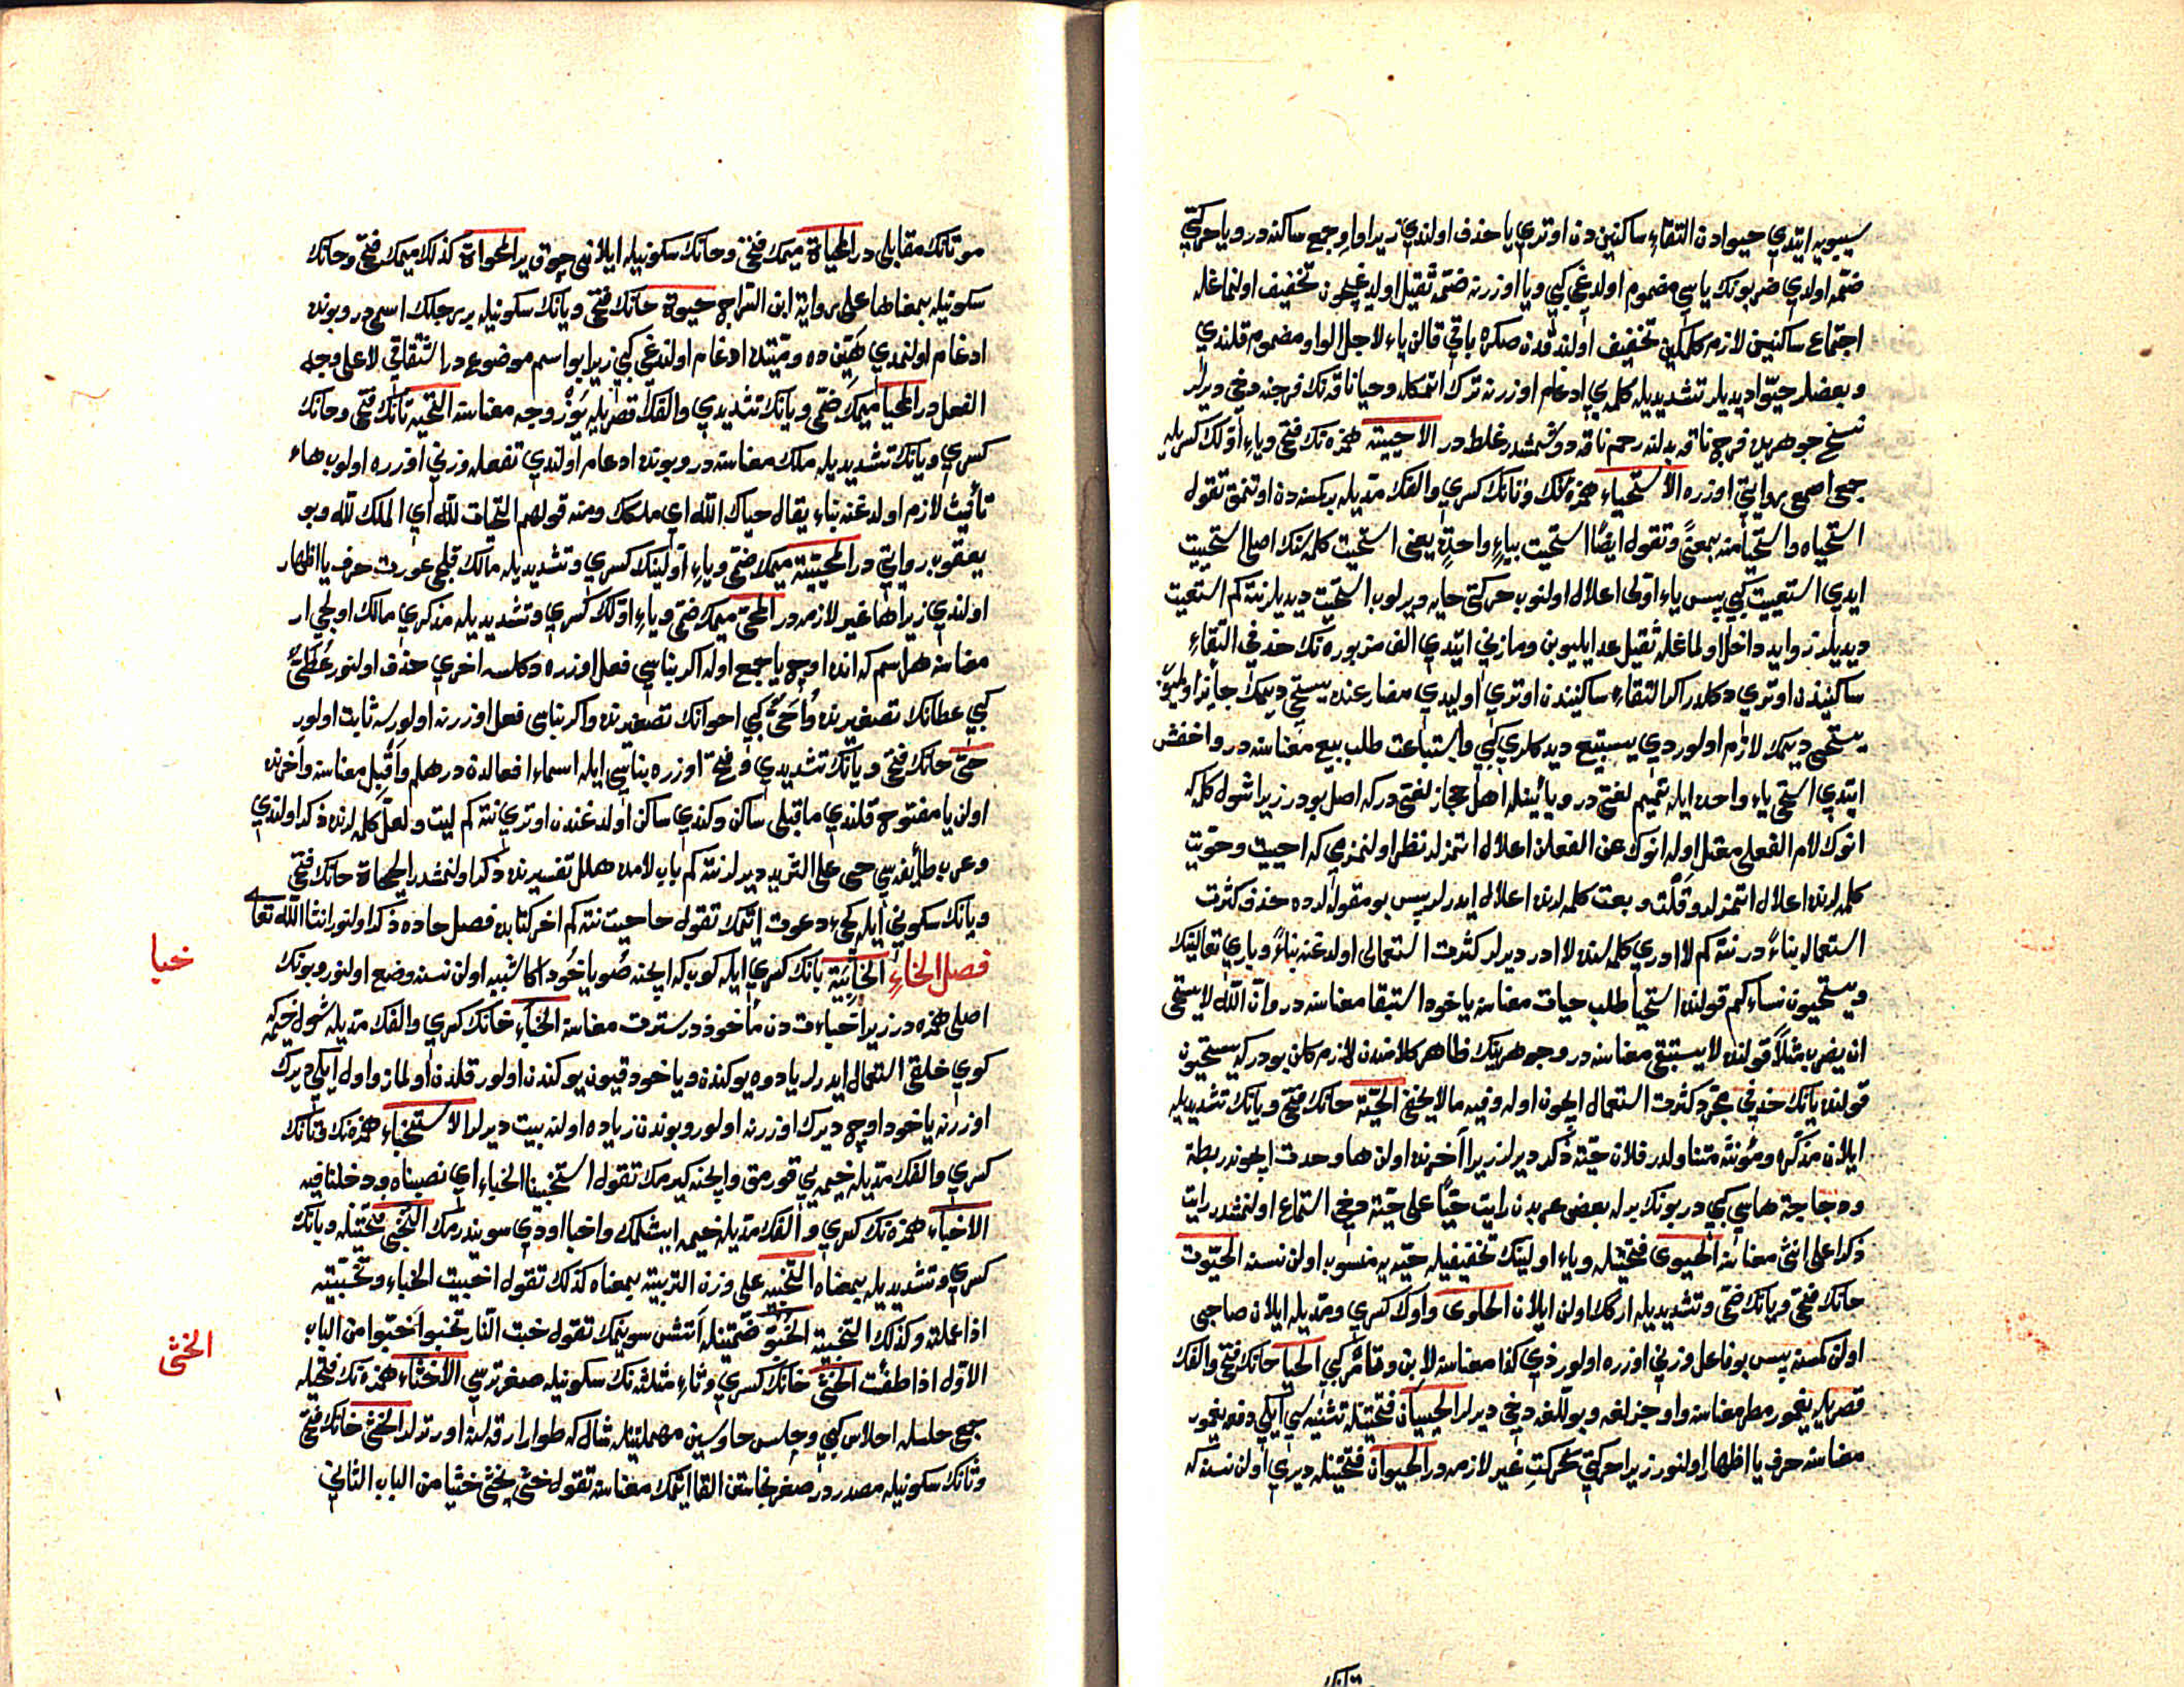 سيبويه ايتدي حيوادن التقاء ساكنين دن اوتري يا حذف اولندي زيرا واو جمع ساكنه در و يا حركتي
ضمه اولدي ضربونك ياسي مضموم اولدغي كبي و يا اوزرنه ضمه ثقيل اولديغيچون تخفيف اولنماغله
اجتماع ساكنين لازم كلمكين تخفيف اولندقدن صكره باقي قالن ياء لاجل الواو مضموم قلندي
و بعضلر حيّوا ديديلر تشديديله كلمدي ادغام اوزرنه ترك اتمكله و حيا ناقه نك فرجنه دخي ديرلر
نسخ جوهريده فرج ناقه بدلنه رحم ناقه دوشمشدر غلط در الاحيية همزه نك فتحي و ياء اوّلك كسريله
جمعي اصمعي روايتي اوزره الاستحياء همزه نك و تانك كسري و الفك مديله بركسنه دن اوتنمق تقول
استحياه و استحيا منه بمعنًى و تقول ايضًا استحيت بياءٍ واحدةٍ يعني استحيت كلمه سنك اصلي استحييت
ايدي استعييت كبي پس ياء اولي اعلال اولنوب حركتي حايه ويرلوب استحيت ديديلر نته كم استعيت
ديديلر زوايد داخل اولماغله ثقيل عد ايليوبن و مازني ايتدي الف مزبوره نك حذفي التقاء
ساكنيندن اوتري دكلدر اكر التقاء ساكنيندن اوتري اوليدي مضارعنده يستحي ديمك جايز اولميوب
يستحيي ديمك لازم اولوردي يستبيع ديدكلري كبي و استباعت طلب بيع معناسنه در و اخفش
ايتدي استحي ياء واحده ايله تميم لغتي در و يائينله اهل حجاز لغتي در كه اصل بودر زيرا شول كلمه كه
انوك لام الفعلي معتل اوله انوك عين الفعلن اعلال اتمزلر نظر اولنمزمي كه احييت و حويت
كلمه لرنده اعلال اتمزلر و قلت و بعت كلمه لرنده اعلال ايدرلر پس بو مقوله لرده حذف كثرت
استعماله بناءً در نته كم لا ادري كلمه سنده لا ادر ديرلر كثرت استعمالي اولدغنه بناءً و باري تعالينك
و يستحيون نساءكم قولنده استحيا طلب حيات معناسنه ياخود استبقا معناسنه در و ان الله لا يستحي
ان يضرب مثلاً قولنده لا يستبقي معناسنه در و جوهرينك ظاهر كلامندن لازم كلن بودر كه يستحيون
قولنده يانك حذفي مجرد كثرت استعمال ايچون اوله و فيه ما لا يخفي الحيّة حانك فتحي و يانك تشديديله
ايلان مذكره و مؤنثه متناولدر فلان حيّة ذكر ديرلر زيرا آخرنده اولن ها وحدت ايچوندر بطة
و دجاجة هاسي كبي در بونكله بعض عربدن رايت حيًّا علي حيّة دخي استماع اولنمشدر رايت
ذكرا علي انثي معناسنه الحيوي فتحتينله و ياء اولينك تخفيفيله حيّه يه منسوب اولن نسنه الحيّوت
حانك فتحي و يانك ضمّي و تشديديله اركك اولن ايلان الحاوي واوك كسري و مديله ايلان صاحبي
اولن كمسنه پس بو فاعل وزني اوزره اولور ذي كذا معناسنه لابن و تامر كبي الحيا حانك فتحي و الفك
قصريله يغمور مطر معناسنه و اوجزلغه و بوللغه دخي ديرلر الحييان فتحتينله تثنيه سي ايكي دفعه يغمور
معناسنه حرف يا اظهار اولنور زيرا حركتي حركت غير لازمه در الحيوان فتحتينله ديري اولن نسنه كه
موتانك مقابلي در المحياة ميمك فتحي و حانك سكونيله ايلاني چوق ير المحواة كذلك ميمك فتحي و حانك
سكونيله بمعناها علي رواية ابن السراج حيوة حانك فتحي و يانك سكونيله بر رجلك اسمي در و بونده
ادغام اولنمدي هيّن ده و ميّتده ادغام اولندغي كبي زيرا بو اسم موضوع در اشتقاقي لا علي وجه
الفعل در المحيا ميمك ضمّي و يانك تشديدي و الفك قصريله يوز وجه معناسنه التحية تانك فتحي و حانك
كسري و يانك تشديديله ملك معناسنه در و بونده ادغام اولندي تفعله وزني اوزره اولوب هاء
تأنيث لازم اولدغنه بناء يقال حياك الله اي ملكك و منه قولهم التحيات لله اي الملك لله و بو
يعقوب روايتي در المحيية ميمك ضمّي و ياء اولينك كسري و تشديديله مالك قلجي عورت حرف يا اظهار
اولندي زيرا ها غير لازمه در المحيي ميمك ضمّي و ياء اوّلك كسري و تشديديله مذكري مالك اولجي ار
معناسنه هر اسم كه انده اوچ يا جمع اوله اكر بناسي فعل اوزره دكلسه اخري حذف اولنور عُطَيٌّ
كبي عطانك تصغيرنده و اُحَيٌّ كبي احوانك تصغيرنده و اكر بناسي فعل اوزرنه اولورسه ثابت اولور
حيّ حانك فتحي و يانك تشديدي و فتحه اوزره بناسي ايله اسماء افعالدندر هلم و اَقْبِل معناسنه و آخرنده
اولن يا مفتوح قلندي ما قبلي ساكن و كندي ساكن اولدغندن اوتري نته كم ليت و لعلّ كلمه لرنده ذكر اولندي
و عرب طايفه سي حي علي الثريد ديرلر نته كم باب لامده هلل تفسيرنده ذكر اولنمشدر الحيحاة حانك فتحي
و يانك سكوني ايله كچيء دعوت اتمك تقول حاحيت نته كم اخر كتابده فصل حاده ذكر اولنور ان شا الله تعا
فصل الخاء الخابية بانك كسري ايله كوب كه ايچنه صو ياخود اكا شبيه اولن نسنه وضع اولنور و بونك
خبا
اصلي همزه در زيرا خباءت دن مأخوذدر سترت معناسنه الخباء خانك كسري و الفك مديله شول خيمه كه
كوي خلقي استعمال ايدرلر يا دوه يوكندن و ياخود قيون يوكندن اولور قلدن اولماز و اول ايكي ديرك
اوزرنه ياخود اوچ ديرك اوزرنه اولور و بوندن زياده اولنه بيت ديرلر الاستخباء همزه نك و تانك
كسري و الفك مديله خيمه يي قورمق و ايچنه كيرمك تقول استخبينا الخباء اي نصبناه و دخلنا فيه
الاخباء همزه نك كسري و الفك مديله خيمه ايشلمك و اخبا اودي سويندرمك التخبي فتحتينله و بانك
كسري و تشديديله بمعناه التخبية علي وزن التربية بمعناه كذلك تقول اخبيت الخباء و تخبّيته
اذا عملته و كذلك التخبية الخبوّ ضمتينله آتش سوينمك تقول خبت النار تخبو خبوا من الباب
الاول اذا طفئت الخثي خانك كسري و ثاء مثلثه نك سكونيله صغر ترسي الاخثاء همزه نك فتحيله
الخثي
جمع حلسله احلاس كبي و حلس حا و سين مهملتينله شال كه طوار ارقه سنه اورتدلر الخثي خانك فتحي
و ثانك سكونيله مصدردر صغر نجاستن القا اتمك معناسنه تقول خثي يخثي خثيا من الباب الثاني